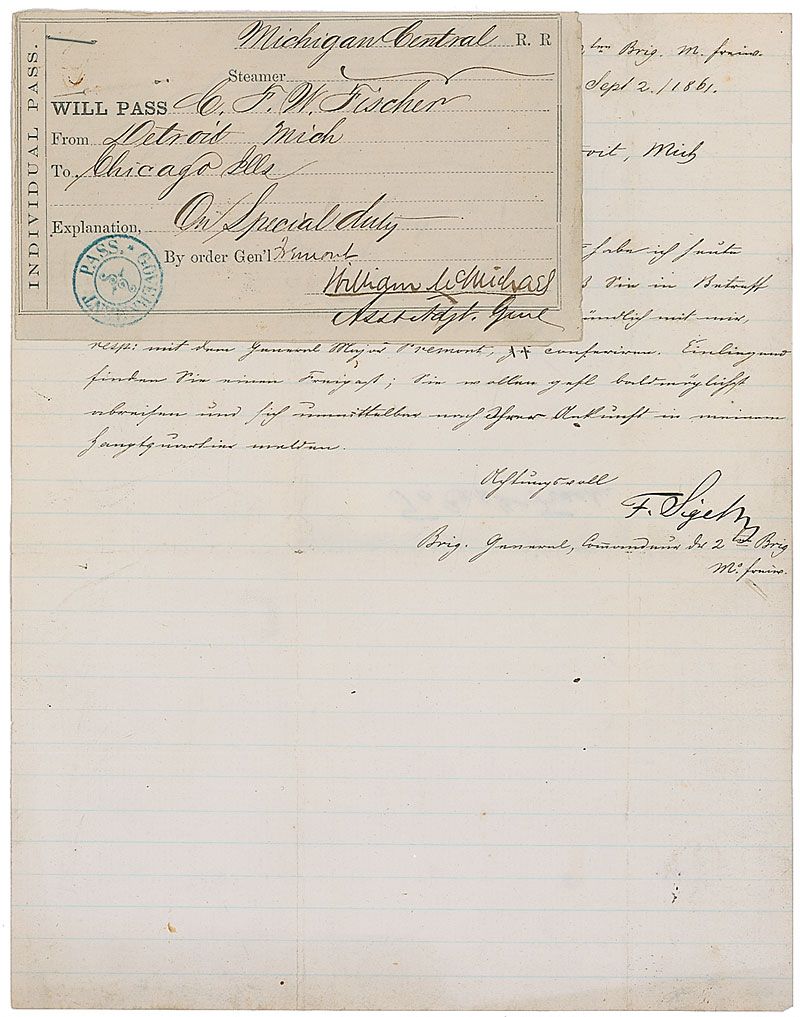 INDIVIDUAL PASS.
Michigan Central R. R
Steamer
WILL PASS C. F. W. Fischer
From Detroit Mich
To Chicago Ills
Explanation, On Special duty
By order Gen'l Fremont
William McMichael
Asst Adjt. Genl
PASS. GOVERNMENT
ten Brig. M. freiw.
Sept 2./1861.
oit, Mich
habe ich heute
Sie in Betreff
ündlich mit mir,
resp: mit dem General Major Fremont, zu conferiren. Einliegend
finden Sie einen Freipass; Sie wollen gefl baldmöglichst
abreisen und sich unmittelbar nach Ihrer Ankunft in meinem
Hauptquartier melden.
Achtungsvoll
F. Sigel
Brig. General, Commandeur der 2ten Brig
Mo. freiw.